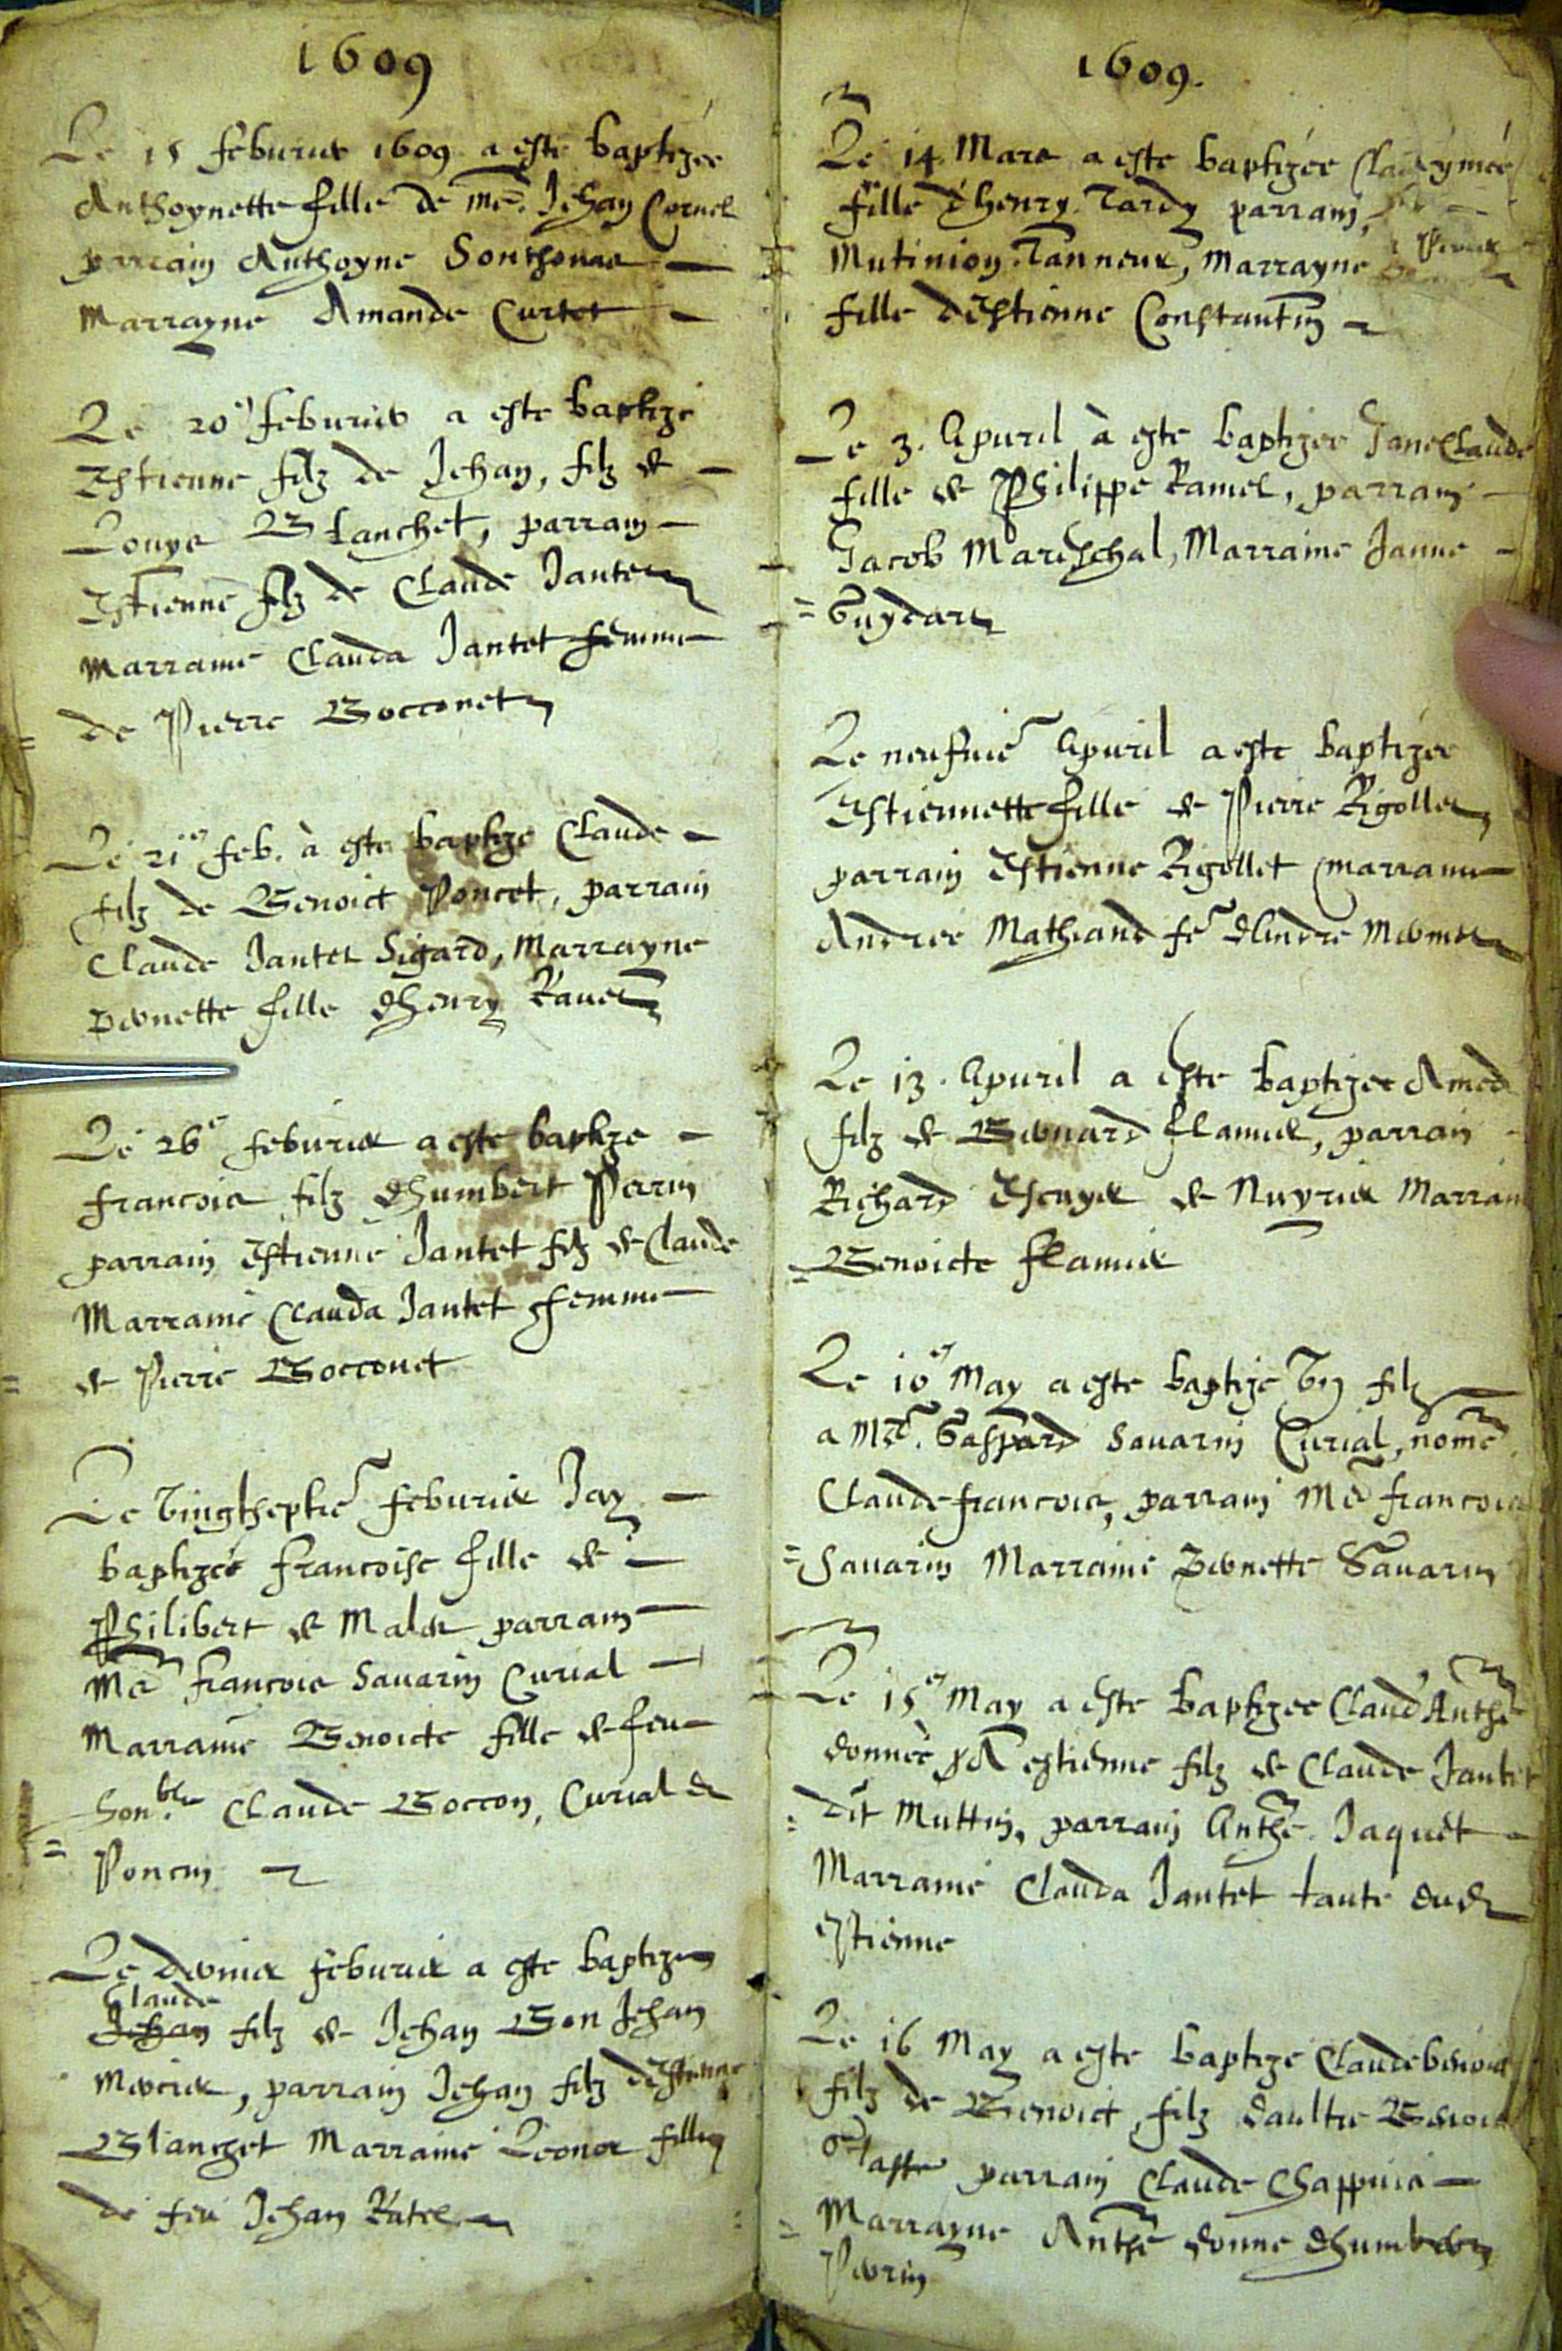 1609
Le 15 feburier 1609 a este baptizée
Anthoynette fille de me. Jehan Cornet
parrain Anthoyne Sonthonas
Marrayne Amande Curtet
Le 20e feburier a este baptizé
Estienne filz de Jehan, filz de
Louys Blanchet, parrain
Estienne filz de Claude Jantet
Marraine Clauda Jantet femme
de Pierre Bocconet
Le 21e feb. à este baptizé Claude
filz de Benoict Poncet, parrain
Claude Jantet Sigard, Marrayne
Pernette fille dhenry Ravet
Le 26e feburier a este baptizé
francois filz dhumbert Perrin
parrain Estienne Jantet filz de Claude
Marraine Clauda Jantet femme
de Pierre Bocconet
Le Vingtheptie feburier Jay
baptizée francoise fille de
Philibert de Malar parrain
Me francois Savarin Curial
Marraine Benoicte fille de feu
honble Claude Boccon, Curial de
Poncin
Le dernier feburier a este baptizé
Claude
Jehan filz de Jehan Bon Jehan
Mercier, parrain Jehan filz destienne
Blanchet Marraine Leonor fille
de feu Jehan Ratel
1609.
Le 14. Mars a este baptizée
fille d'henry Tardy parrain,
Mutinion Tanneur, Marrayne
fille dEstienne Constantin
Le 3. Apuril à este baptizee JaneClaude
fille de Philippe Ramel, parrain
Jacob Mareschal, Marraine Janne
Guydar
Le neufuie Apuril a este baptizée
Estiennette fille de Pierre Rigollet,
parrain Estienne Rigollet marraine
Andree Mathiand fe dAndre
Le 13. Apuril a este baptizee Amed
filz de Bernard flamier, parrain
Richard Escuyer de Nuyrier Marraine
Benoicte flamier
Le 10e May a este baptizé Vn filz
a Me. Gaspard Savarin Curial, nomé
Claudefrancois, parrain Me francois
Savarin Marraine Pernette Savarin
Le 15e May a este baptizee Claud'Anthe
donnée pA estienne filz de Claude Jantet
dit Muttin, parrain Anthe. Jaquet
Marraine Clauda Jantet tante dud
estienne
Le 16 May a este baptizé Claudebenoict
filz de Benoict filz daultre Benoict
parrain Claude Chappuis
Marrayne Anthe donne dhumbert
Perrin